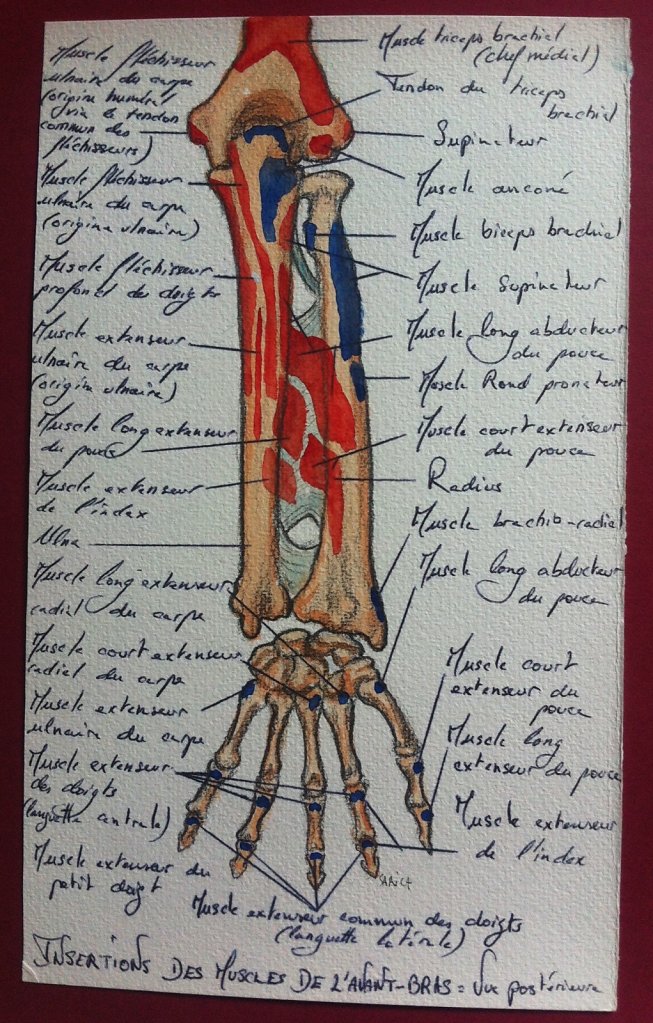 Muscle fléchisseur
ulnaire du carpe
(origine humérale
via le tendon
commun des
fléchisseurs)
Muscle fléchisseur
ulnaire du carpe
(origine ulnaire)
Muscle fléchisseur
profond des doigts
Muscle extenseur
ulnaire du carpe
(origine ulnaire)
Muscle long extenseur
du pouce
Muscle extenseur
de l'index
Ulna
Muscle long extenseur
radial du carpe
Muscle court extenseur
radial du carpe
Muscle extenseur
ulnaire du carpe
Muscle extenseur
des doigts
(languette centrale)
Muscle extenseur du
petit doigt
Muscle triceps brachial
(chef médial)
Tendon du triceps
brachial
Supinateur
Muscle anconé
Muscle biceps brachial
Muscle Supinateur
Muscle long abducteur
du pouce
Muscle Rond pronateur
Muscle court extenseur
du pouce
Radius
Muscle brachio-radial
Muscle long abducteur
du pouce
Muscle court
extenseur du
pouce
Muscle long
extenseur du pouce
Muscle extenseur
de l'index
SARICA
Muscle extenseur commun des doigts
(languette latérale)
INSERTIONS DES MUSCLES DE L'AVANT-BRAS = Vue postérieure